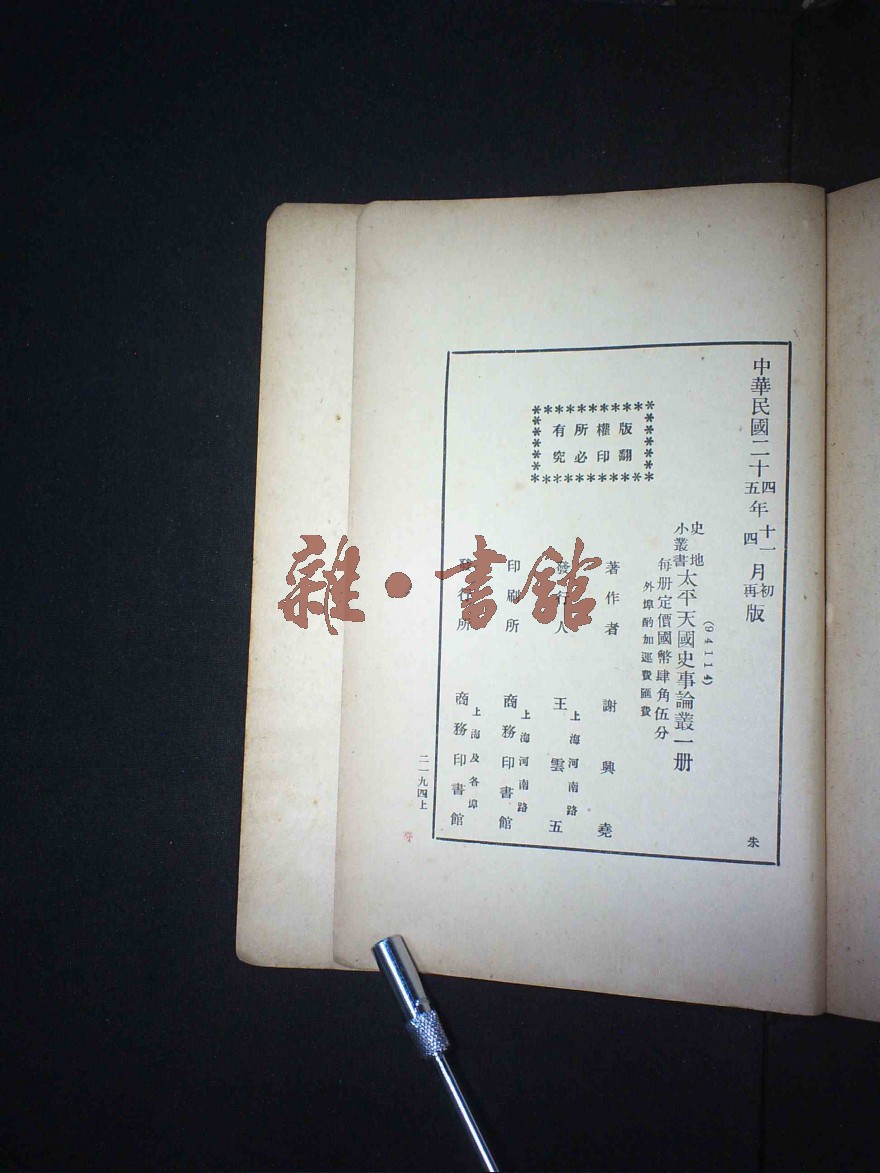 中華民國二十四年十一月初版
五 四 再
(94114)
史地
小叢書
太平天國史事論叢一册
每册定價國幣肆角伍分
外埠酌加運費匯費
版權所有
翻印必究
著作者 謝興堯
發行人 王雲五
上海河南路
印刷所 商務印書館
上海河南路
發行所 商務印書館
上海及各埠
二一九四上
朱
雜·書館